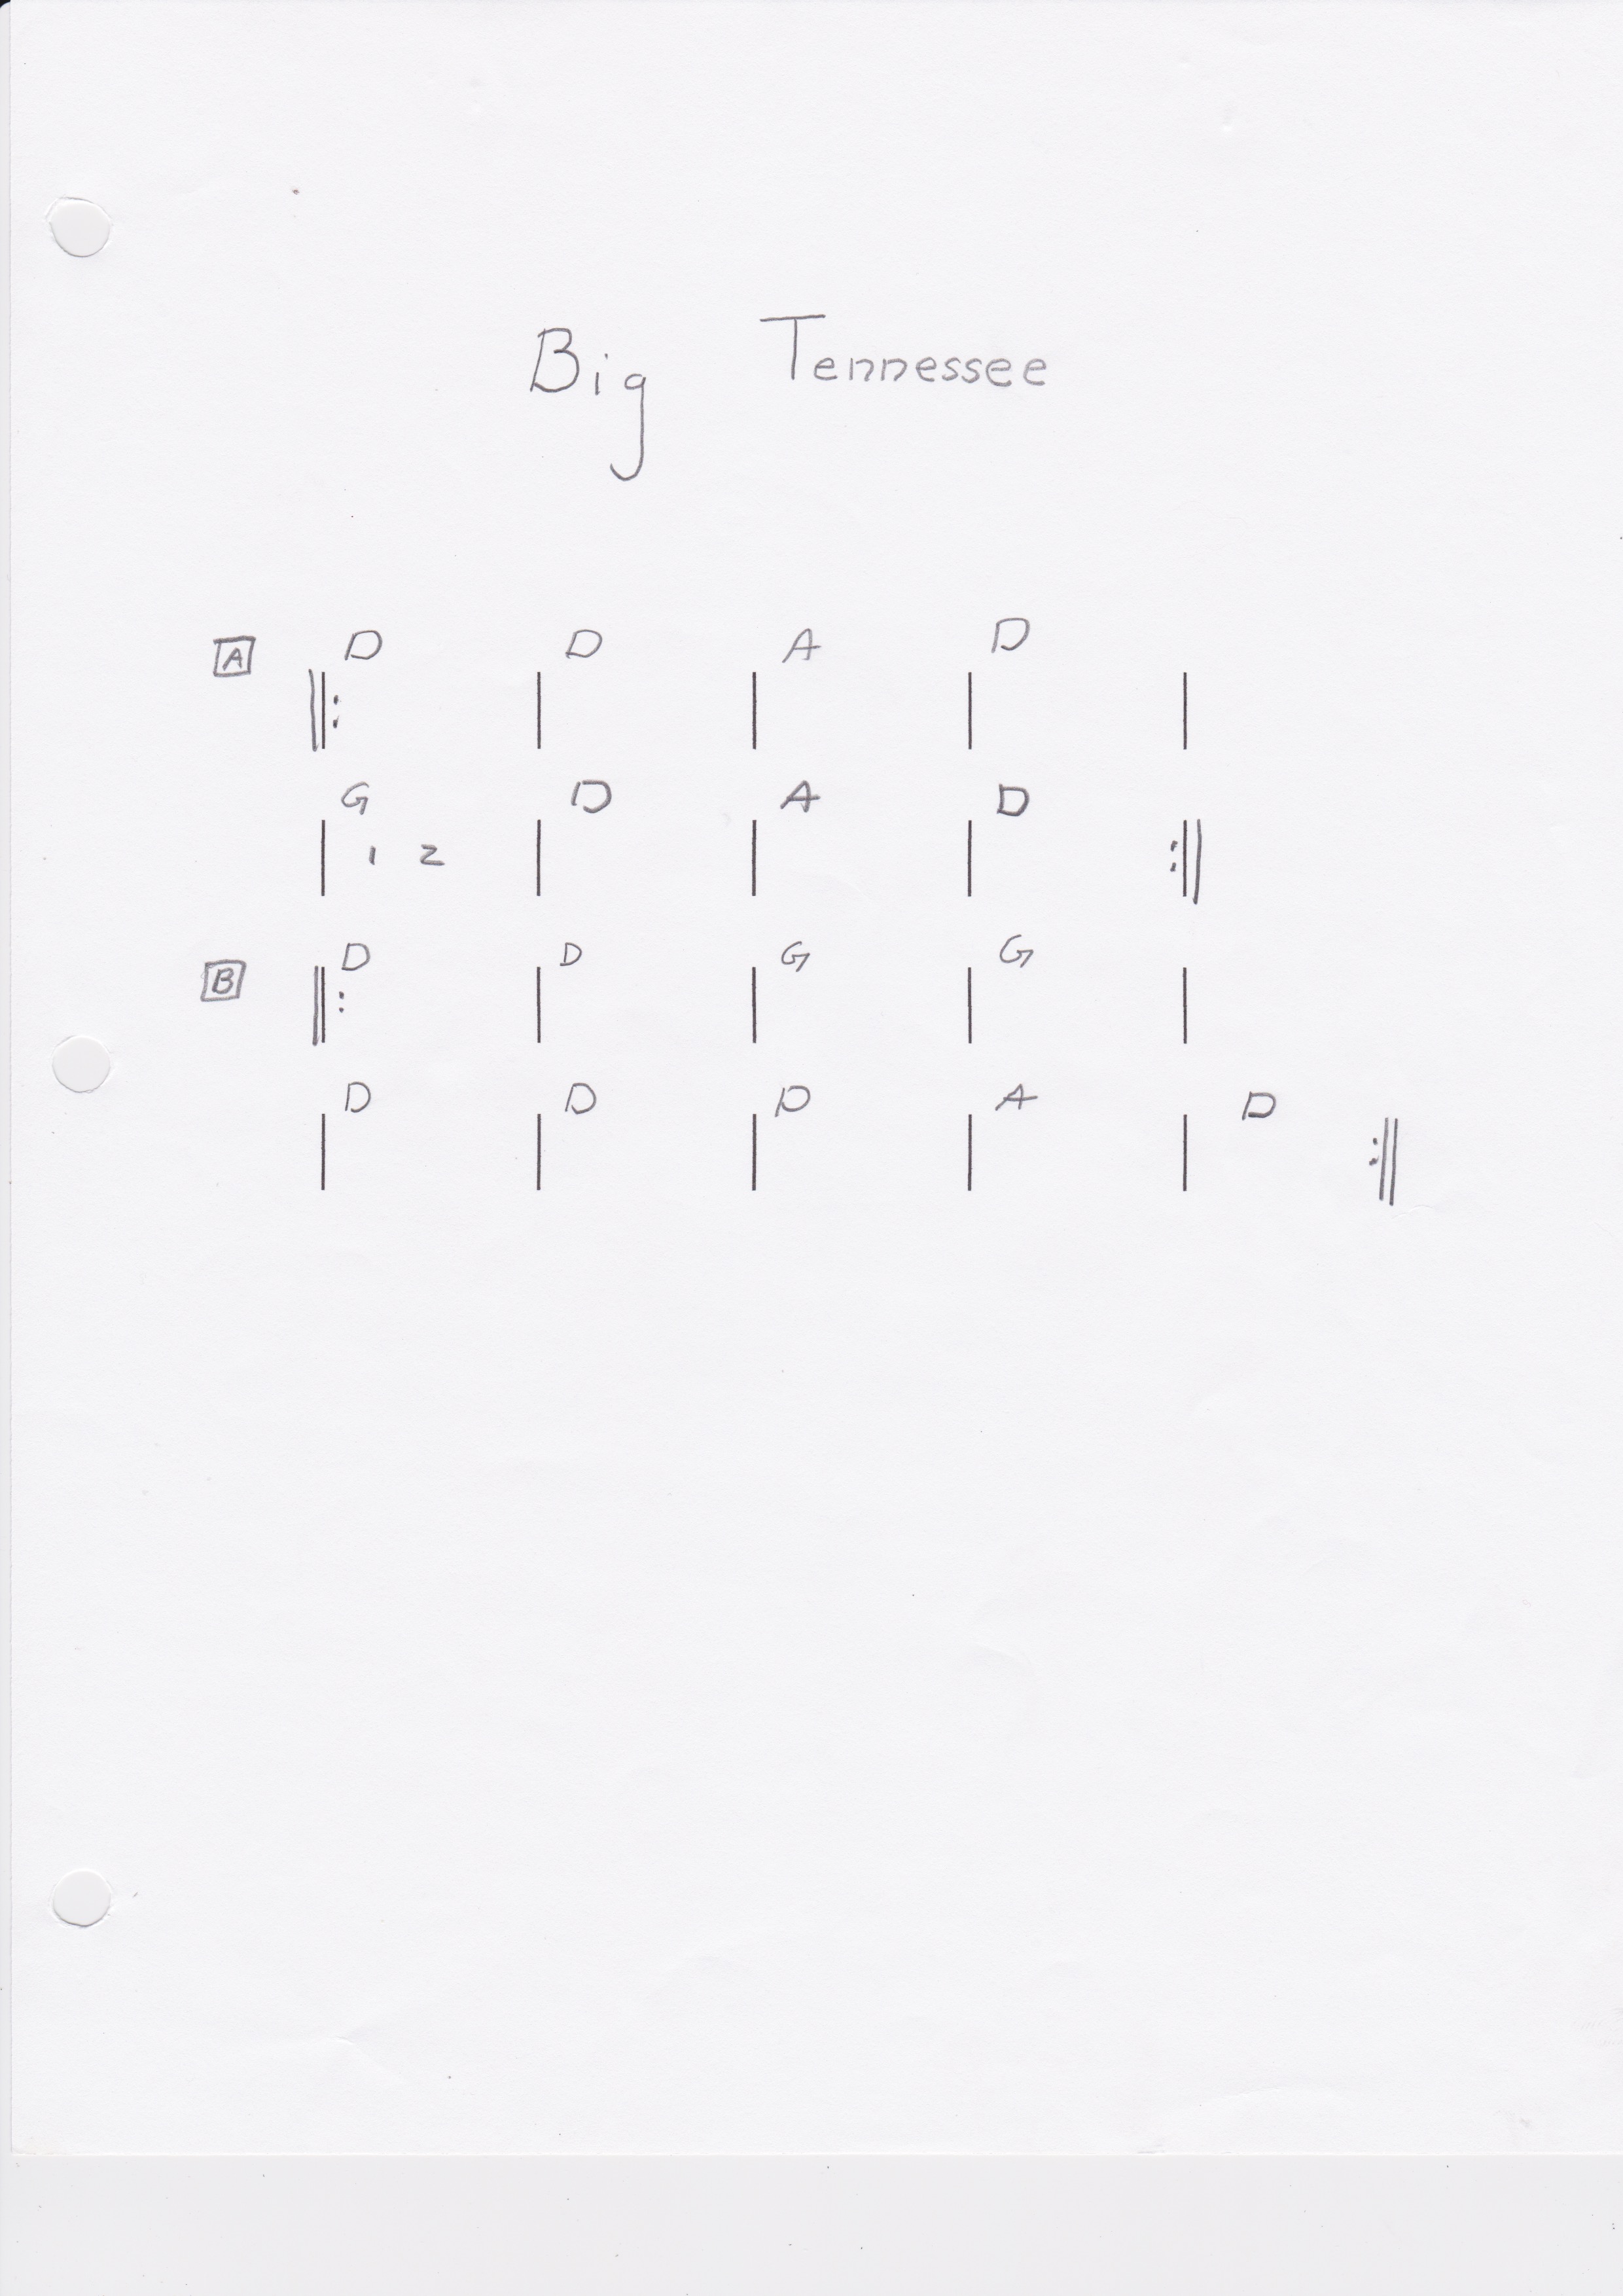 Big Tennessee
A D D A D
G D A D
1 2
B D D G G
D D D A D